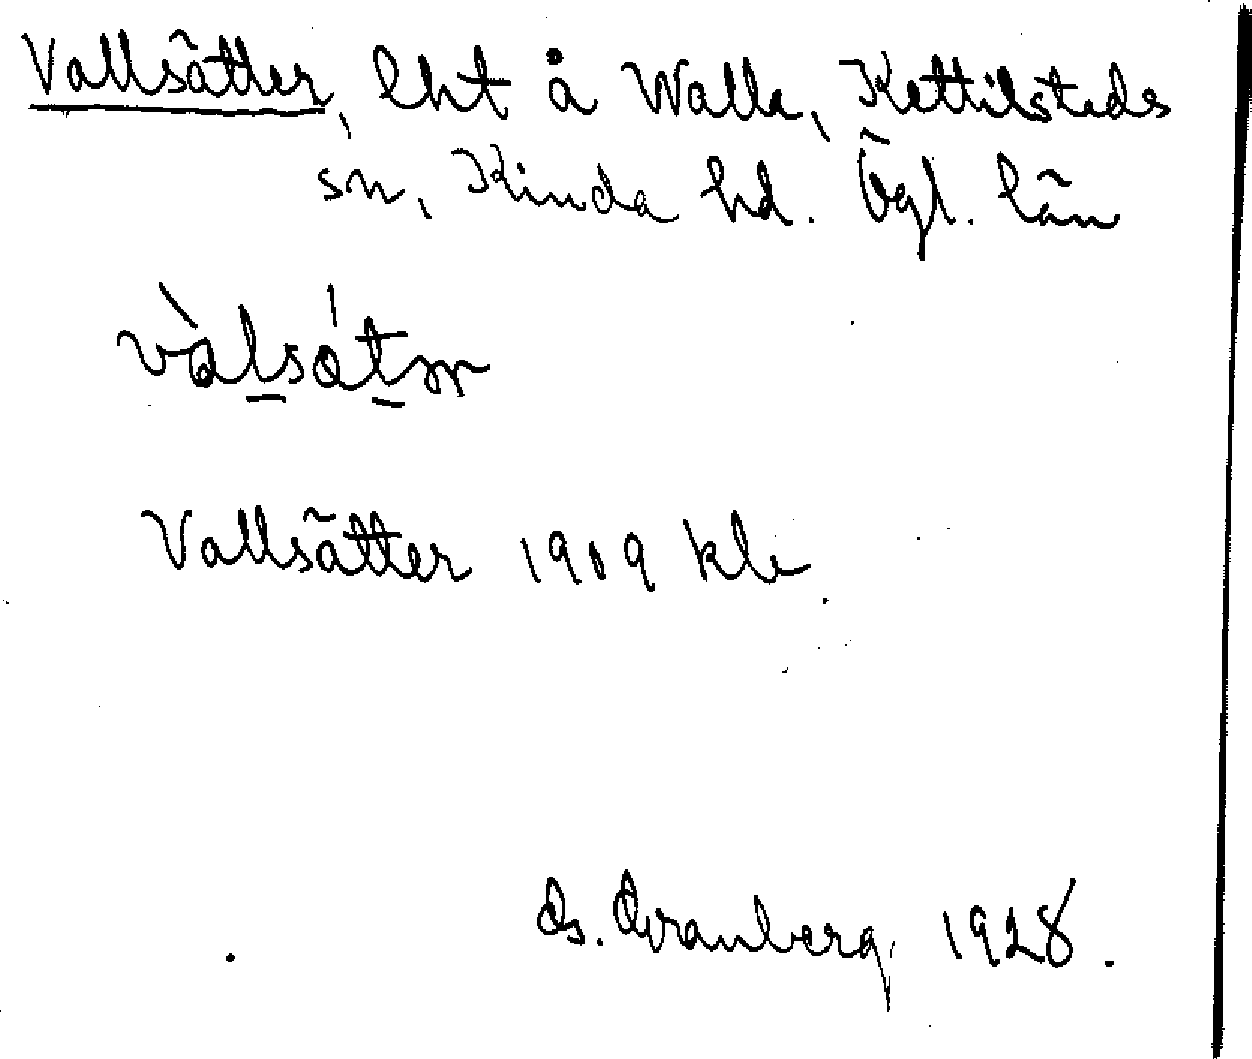 Vallsätter, lht å Walla, Kettilsteds
sn, Kinda hd. Ögl. län
vàlsátər
Vallsätter 1909 kle
Gs. Granberg. 1928.